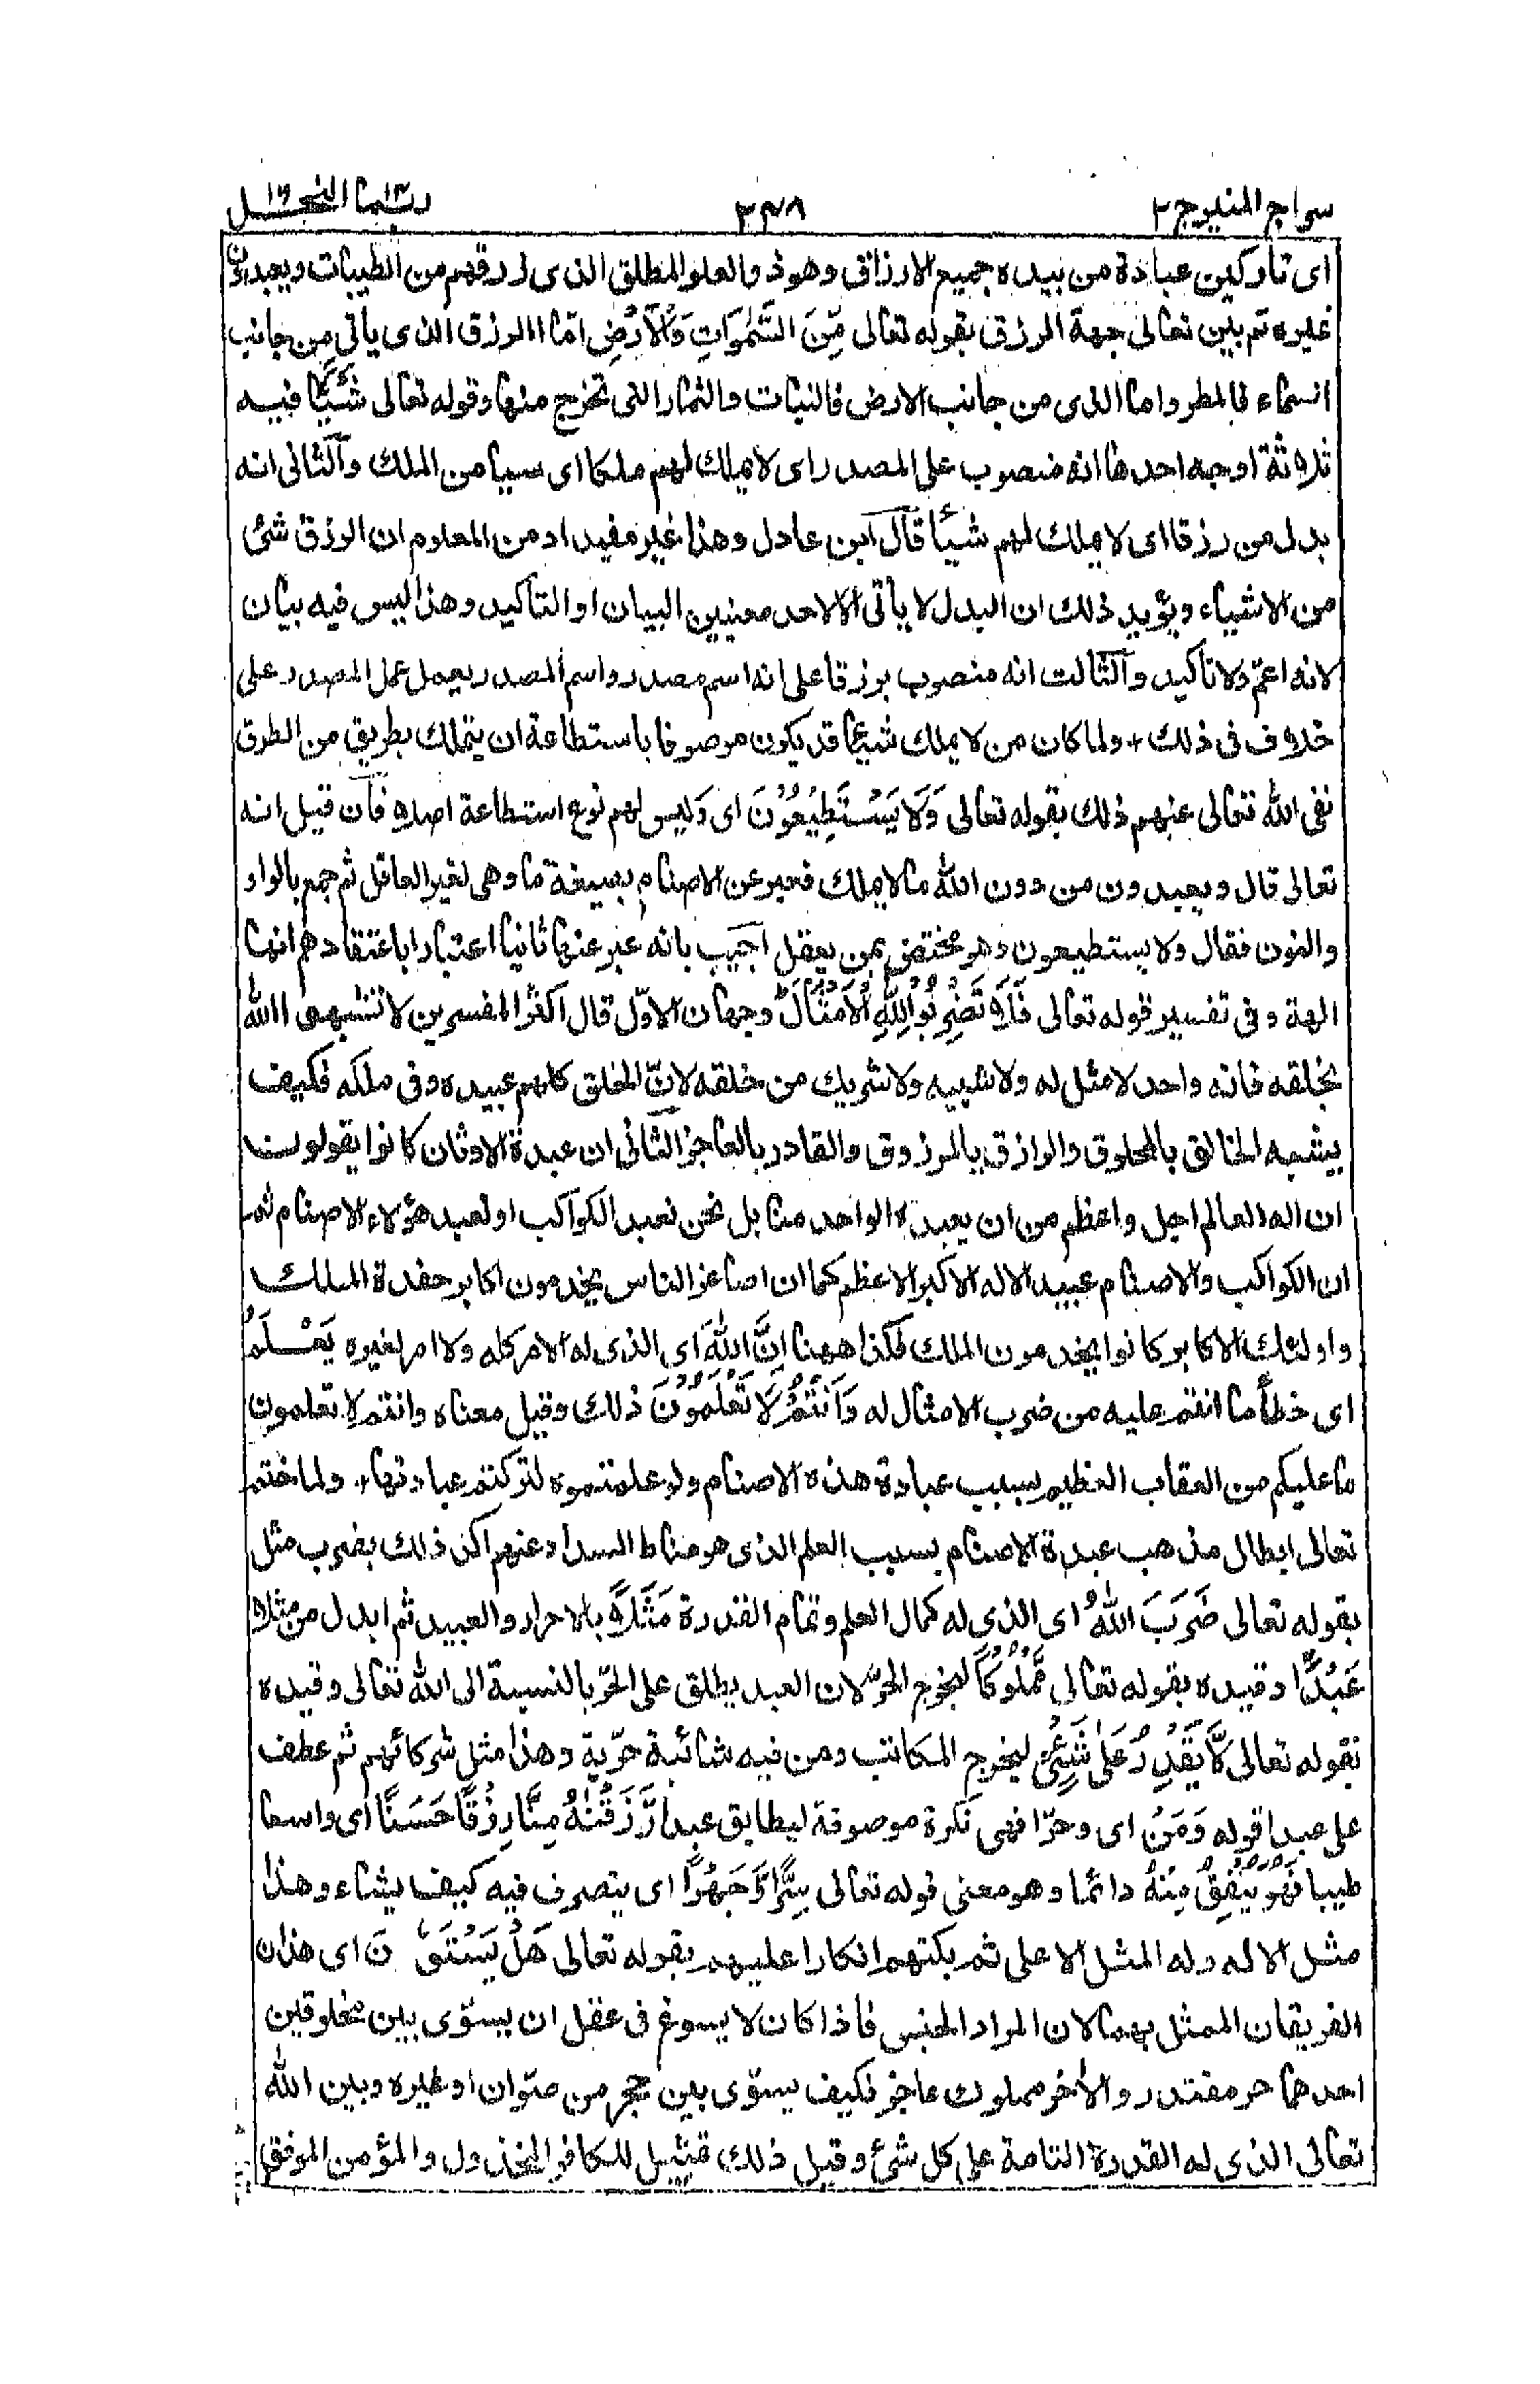 سراج المنير ج ٢
٣٤٨
ربما ١٤ النحل ١٦
اى تاركين عبادة من بيده جميع الارزاق وهو ذو العلو المطلق الذى رزقهم من الطيبات ويعبدون
غيره ثم بين تعالى جهة الرزق بقوله تعالى مِّنَ السَّمٰوٰتِ وَالْاَرْضِ امّا الرزق الذى يأتى من جانب
السماء فالمطر واما الذى من جانب الارض فالنبات والثمار التى تخرج منها وقوله تعالى شَيْئًا فيه
ثلاثة اوجه احدها انه منصوب على المصدر اى لا يملك لهم ملكا اى شيا من الملك والثانى انه
بدل من رزقا اى لا يملك لهم شيئا قال ابن عادل وهذا غير مفيد اذ من المعلوم ان الرزق شئ
من الاشياء ويؤيد ذلك ان البدل لا يأتى الا لاحد معنيين البيان او التأكيد وهذا ليس فيه بيان
لانه اعمّ ولا تأكيد والثالث انه منصوب برزقا على انه اسم مصدر واسم المصدر يعمل عمل المصدر على
خلاف فى ذلك + ولما كان من لا يملك شيئا قد يكون موصوفا باستطاعة ان يتملك بطريق من الطرق
نفى الله تعالى عنهم ذلك بقوله تعالى وَلَا يَسْتَطِيْعُوْنَ اى وليس لهم نوع استطاعة اصلا فان قيل انه
تعالى قال ويعبدون من دون الله ما لا يملك فعبر عن الاصنام بصيغة ما وهى لغير العاقل ثم جمع بالواو
والنون فقال ولا يستطيعون وهو مختص بمن يعقل اجيب بانه عبر عنها ثانيا اعتبارا باعتقادهم انها
الهة وفى تفسير قوله تعالى فَلَا تَضْرِبُوْا لِلّٰهِ الْاَمْثَالَ وجهان الاوّل قال اكثر المفسرين لا تشبهوا الله
بخلقه فانه واحد لا مثل له ولا شبيه ولا شريك من خلقه لانّ الخلق كلهم عبيده وفى ملكه فكيف
يشبه الخالق بالمخلوق والرازق بالمرزوق والقادر بالعاجز الثانى ان عبدة الاوثان كانوا يقولون
ان اله العالم اجل واعظم من ان يعبده الواحد منا بل نحن نعبد الكواكب او نعبد هؤلاء الاصنام ثم
ان الكواكب والاصنام عبيد الاله الاكبر الاعظم كما ان اصاغر الناس يخدمون اكابر حفدة الملك
واولئك الاكابر كانوا يخدمون الملك فكذا ههنا اِنَّ اللهَ اى الذى له الامر كله ولا امر لغيره يَعْلَمُ
اى خطأ ما انتم عليه من ضرب الامثال له وَاَنْتُمْ لَا تَعْلَمُوْنَ ذلك وقيل معناه وانتم لا تعلمون
ما عليكم من العقاب العظيم بسبب عبادة هذه الاصنام ولو علمتموه لتركتم عبادتها + ولما ختم
تعالى ابطال مذهب عبدة الاصنام بسبب العلم الذى هو مناط السداد عنهم اكد ذلك بضرب مثل
بقوله تعالى ضَرَبَ اللهُ اى الذى له كمال العلم وتمام القدرة مَثَلًا بالاحرار والعبيد ثم ابدل من مثلا
عَبْدًا وقيده بقوله تعالى مَّمْلُوْكًا ليخرج الحرّ لان العبد يطلق على الحرّ بالنسبة الى الله تعالى وقيده
بقوله تعالى لَّا يَقْدِرُ عَلٰى شَيْءٍ ليخرج المكاتب ومن فيه شائبة حرّية وهذا مثل شركائهم ثم عطف
على عبدا قوله وَمَنْ اى وحرّا فهى نكرة موصوفة ليطابق عبدا رَّزَقْنٰهُ مِنَّا رِزْقًا حَسَنًا اى واسعا
طيبا فَهُوَ يُنْفِقُ مِنْهُ دائما وهو معنى قوله تعالى سِرًّا وَّجَهْرًا اى يتصرف فيه كيف يشاء وهذا
مثل الاله وله المثل الاعلى ثم بكتهم انكارا عليهم بقوله تعالى هَلْ يَسْتَوٗنَ اى هذان
الفريقان الممثل بهما لان المراد الجنس فاذا كان لا يسوغ فى عقل ان يسوّى بين مخلوقين
احدهما حر مقتدر والاخر مملوك عاجز فكيف يسوّى بين حجر من صوّان او غيره وبين الله
تعالى الذى له القدرة التامة على كل شئ وقيل ذلك تمثيل للكافر المخذول والمؤمن الموفق